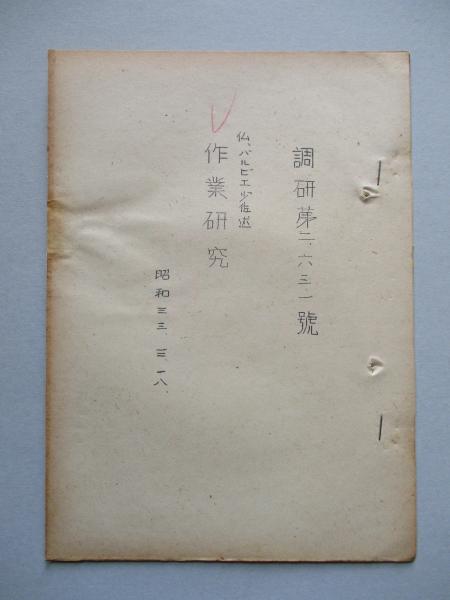 調研第二、六三一號
仏、バルビエ少佐述
作業研究
昭和三三、三、一八、